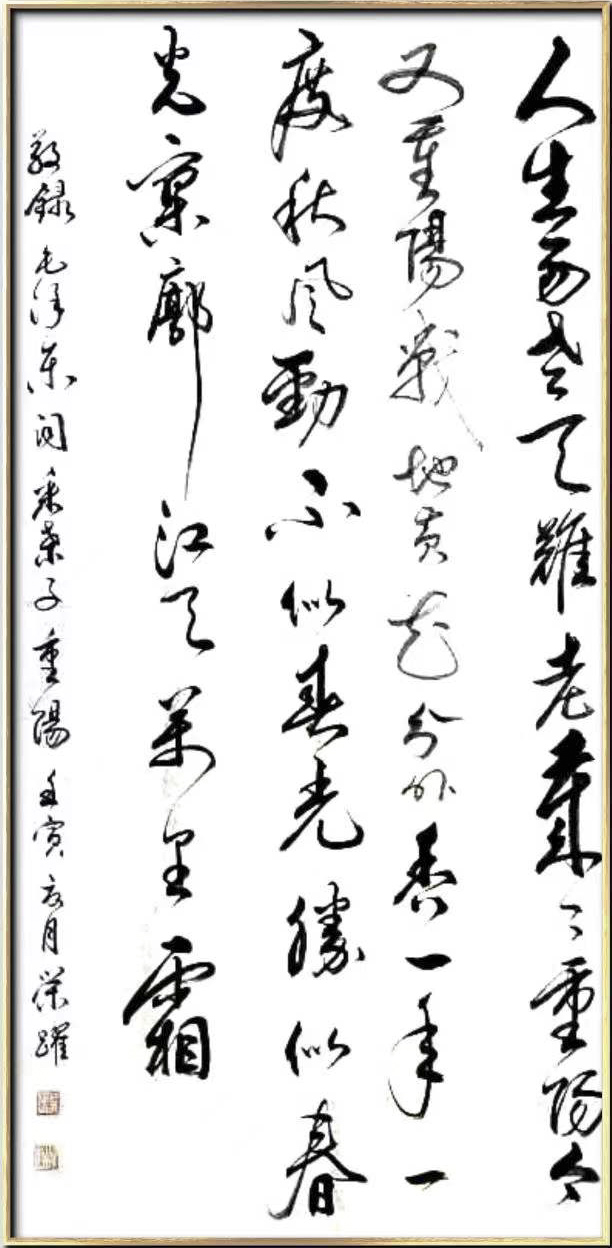 人生易老天難老歲〻重陽今
又重陽戰地黃花分外香一年一
度秋風勁不似春光勝似春
光寥廓江天萬里霜
敬錄毛澤東词采桑子重陽壬寅月榮躍